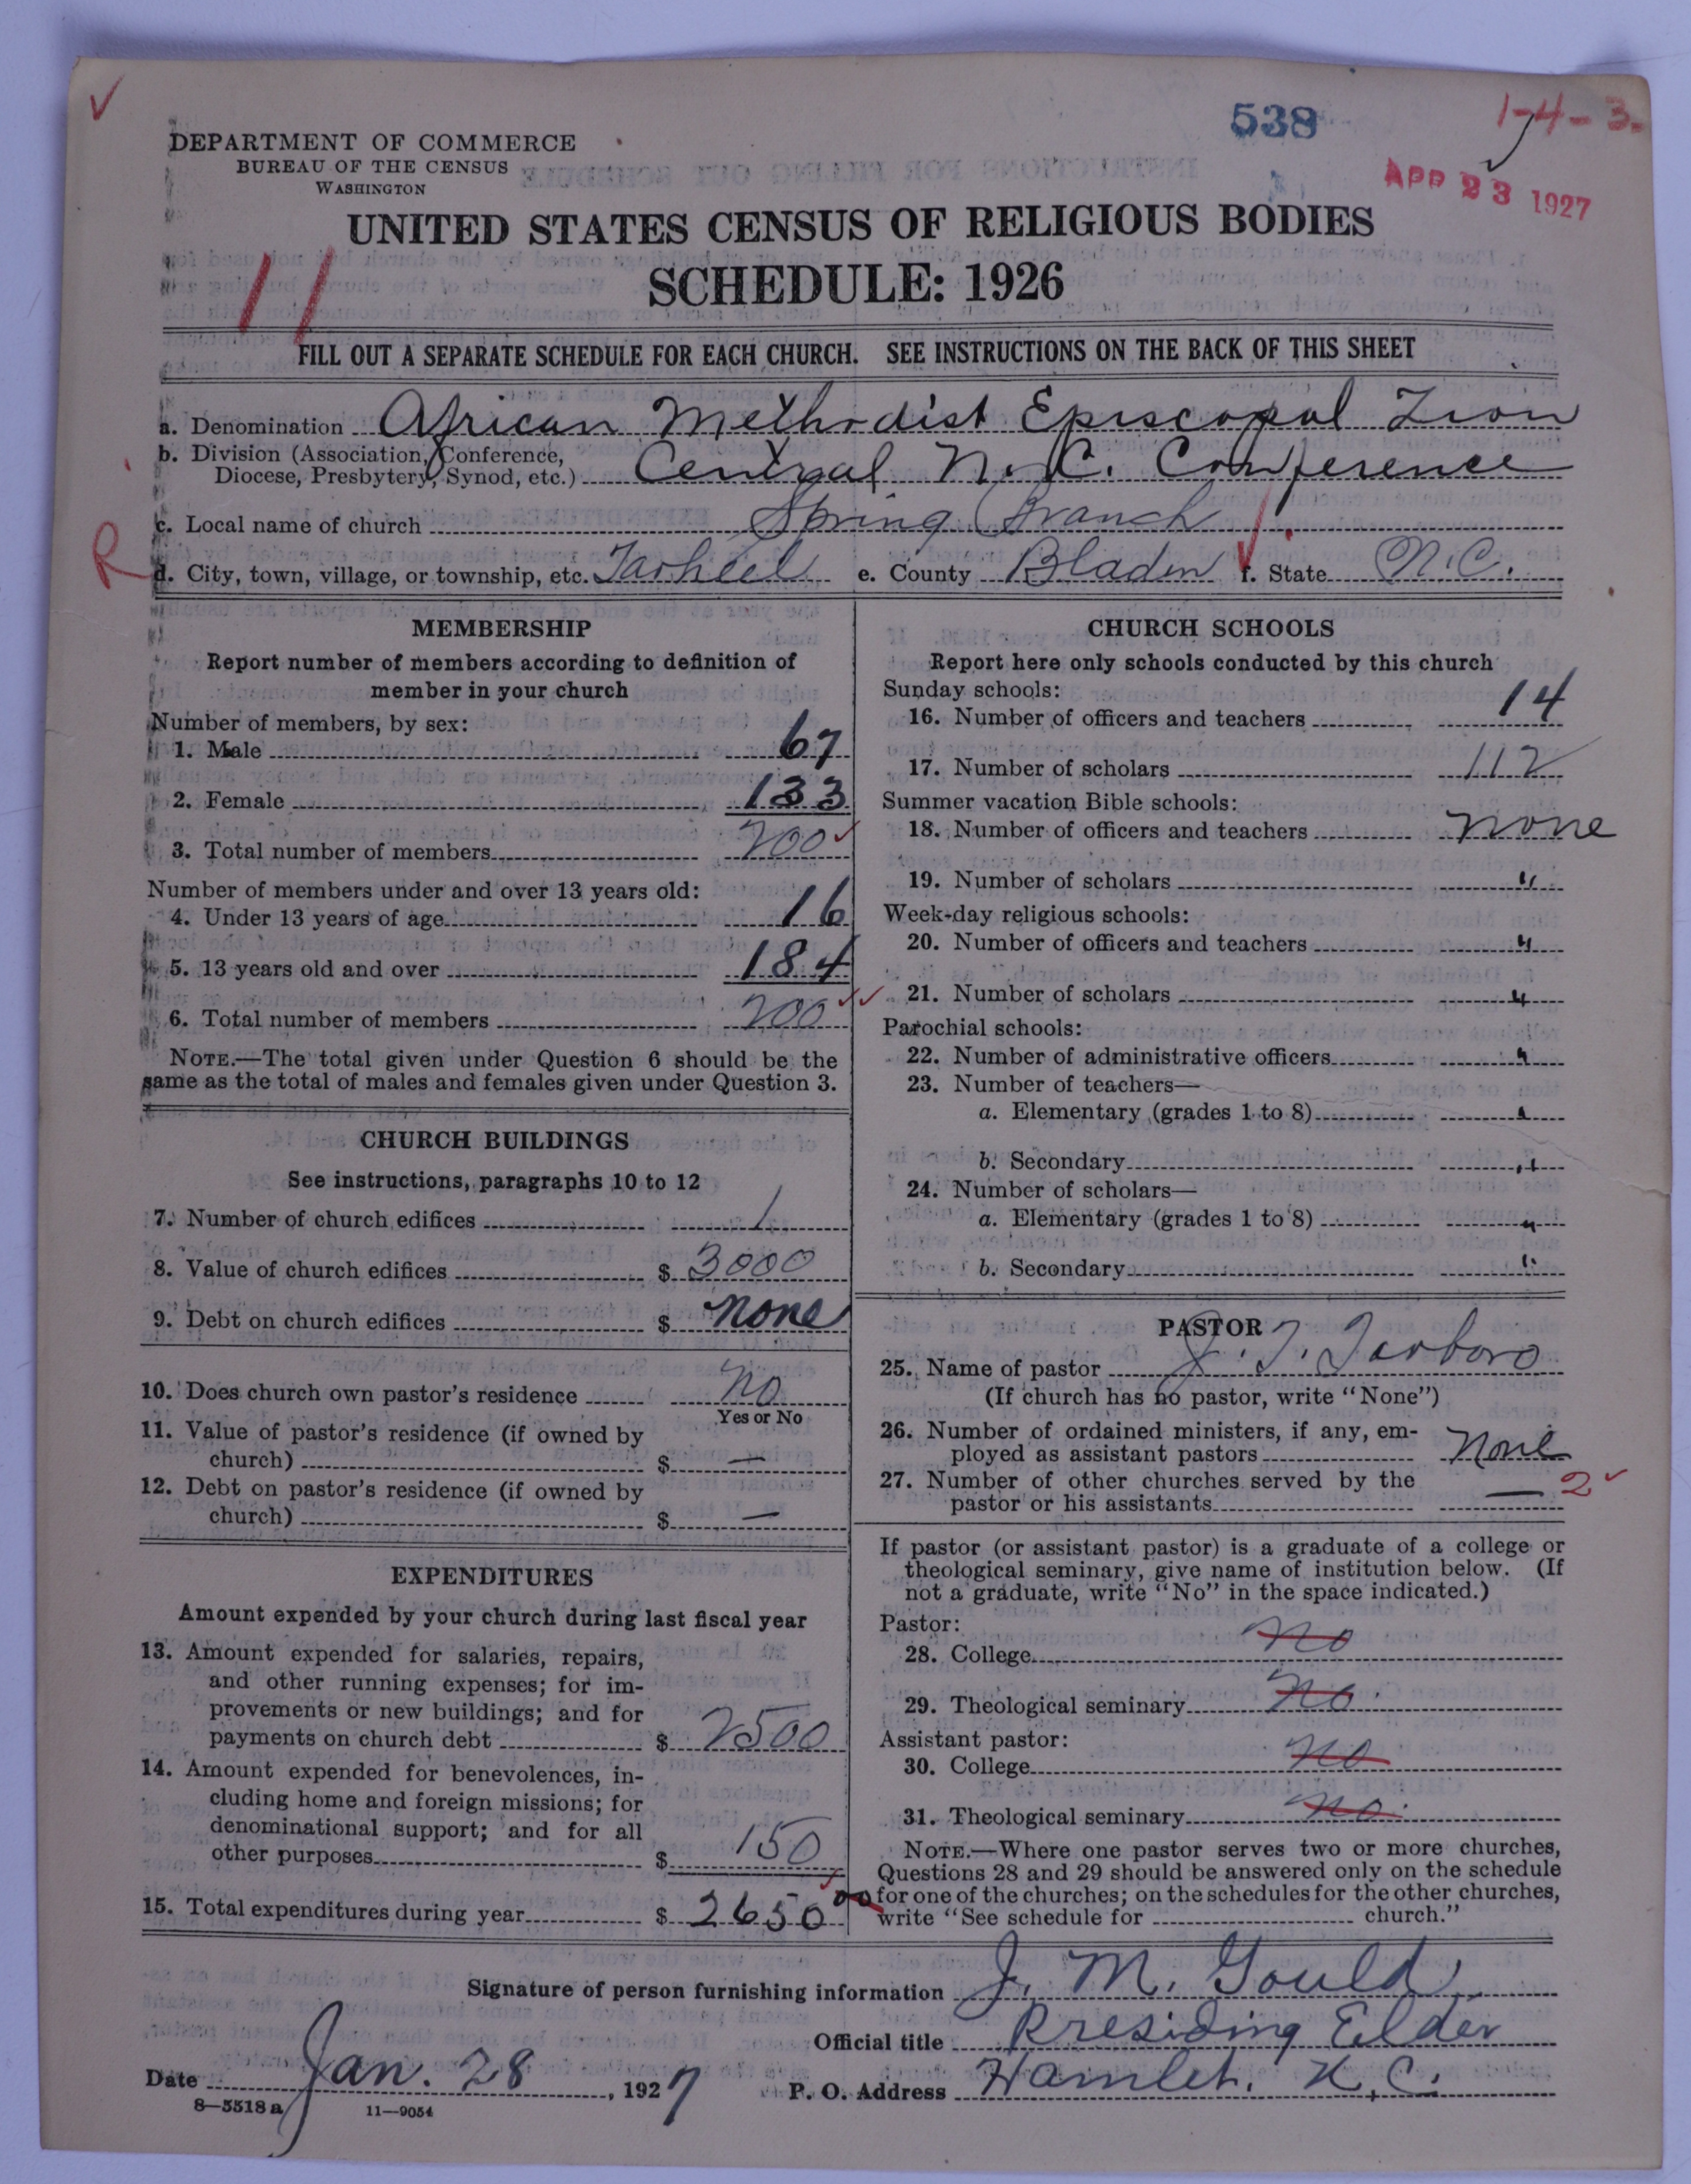 538
1-4-3-
APR 23 1927
DEPARTMENT OF COMMERCE
BUREAU OF THE CENSUS
WASHINGTON
UNITED STATES CENSUS OF RELIGIOUS BODIES
SCHEDULE: 1926
11
FILL OUT A SEPARATE SCHEDULE FOR EACH CHURCH. SEE INSTRUCTIONS ON THE BACK OF THIS SHEET
a. Denomination African Methodist Episcopal Zion
b. Division (Association, Conference,
Diocese, Presbytery, Synod, etc.) Central N.C. Conference
c. Local name of church Spring Branch
R
d. City, town, village, or township, etc. Tarheel e. County Bladen f. State N.C.
MEMBERSHIP
Report number of members according to definition of
member in your church
Number of members, by sex:
1. Male 67
2. Female 133
3. Total number of members 200
Number of members under and over 13 years old:
4. Under 13 years of age 16
5. 13 years old and over 184
6. Total number of members 200
NOTE.—The total given under Question 6 should be the
same as the total of males and females given under Question 3.
CHURCH BUILDINGS
See instructions, paragraphs 10 to 12
7. Number of church edifices 1
8. Value of church edifices $ 3000
9. Debt on church edifices $ none
10. Does church own pastor's residence No
Yes or No
11. Value of pastor's residence (if owned by
church) $ —
12. Debt on pastor's residence (if owned by
church) $ —
EXPENDITURES
Amount expended by your church during last fiscal year
13. Amount expended for salaries, repairs,
and other running expenses; for im-
provements or new buildings; and for
payments on church debt $ 2500
14. Amount expended for benevolences, in-
cluding home and foreign missions; for
denominational support; and for all
other purposes $ 150
15. Total expenditures during year $ 2650 00
CHURCH SCHOOLS
Report here only schools conducted by this church
Sunday schools:
16. Number of officers and teachers 14
17. Number of scholars 112
Summer vacation Bible schools:
18. Number of officers and teachers none
19. Number of scholars "
Week-day religious schools:
20. Number of officers and teachers "
21. Number of scholars "
Parochial schools:
22. Number of administrative officers "
23. Number of teachers—
a. Elementary (grades 1 to 8) "
b. Secondary "
24. Number of scholars—
a. Elementary (grades 1 to 8) "
b. Secondary "
PASTOR
25. Name of pastor J. T. Tarboro
(If church has no pastor, write "None")
26. Number of ordained ministers, if any, em-
ployed as assistant pastors None
27. Number of other churches served by the
pastor or his assistants — 2
If pastor (or assistant pastor) is a graduate of a college or
theological seminary, give name of institution below. (If
not a graduate, write "No" in the space indicated.)
Pastor:
28. College No
29. Theological seminary No.
Assistant pastor:
30. College No
31. Theological seminary No.
NOTE.—Where one pastor serves two or more churches,
Questions 28 and 29 should be answered only on the schedule
for one of the churches; on the schedules for the other churches,
write "See schedule for church."
Signature of person furnishing information J. M. Gould
Official title Presiding Elder
Date Jan. 28, 1927 P. O. Address Hamlet. N.C.
8—5518 a 11—9054